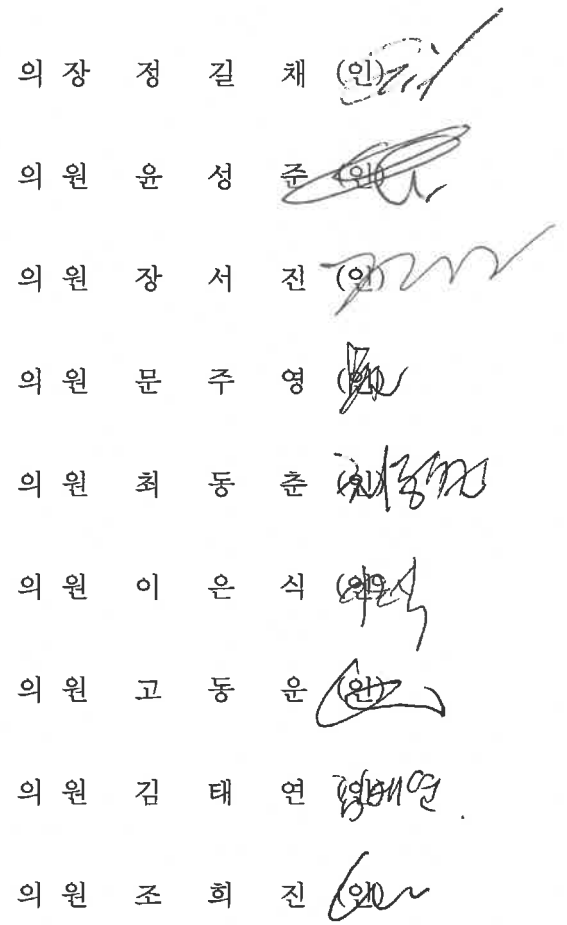 의 장 정 길 채 (인)
의 원 윤 성 준 (인)
의 원 장 서 진 (인)
의 원 문 주 영 (인)
의 원 최 동 춘 (인) 최동춘
의 원 이 은 식 (인)
의 원 고 동 운 (인)
의 원 김 태 연 (인) 김태연
의 원 조 희 진 (인)